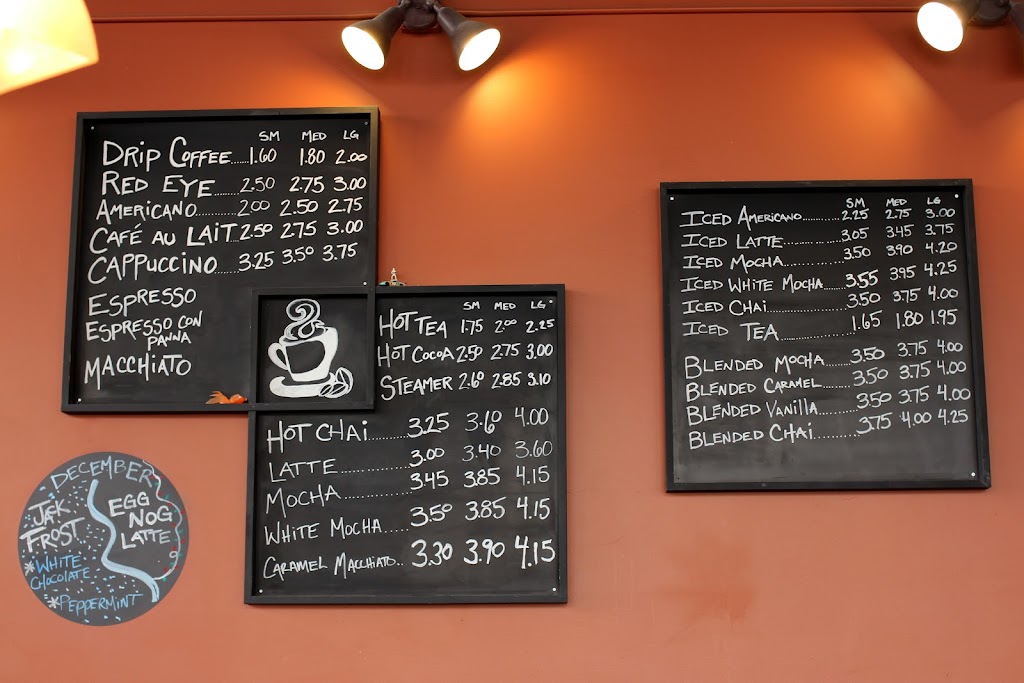 SM MED LG
DRIP COFFEE.......1.60 1.80 2.00
RED EYE.......2.50 2.75 3.00
AMERICANO............2.00 2.50 2.75
CAFÉ AU LAIT...2.50 2.75 3.00
CAPPUCCINO......3.25 3.50 3.75
ESPRESSO
ESPRESSO CON
PANNA
MACCHIATO
SM MED LG
HOT TEA 1.75 2.00 2.25
HOT COCOA 2.50 2.75 3.00
STEAMER 2.60 2.85 3.10
HOT CHAI..........3.25 3.60 4.00
LATTE................3.00 3.40 3.60
MOCHA................3.45 3.85 4.15
WHITE MOCHA.....3.50 3.85 4.15
CARAMEL MACCHIATO..3.30 3.90 4.15
SM MED LG
ICED AMERICANO..........2.25 2.75 3.00
ICED LATTE..............3.05 3.45 3.75
ICED MOCHA..............3.50 3.90 4.20
ICED WHITE MOCHA......3.55 3.95 4.25
ICED CHAI................3.50 3.75 4.00
ICED TEA................1.65 1.80 1.95
BLENDED MOCHA.......3.50 3.75 4.00
BLENDED CARAMEL.......3.50 3.75 4.00
BLENDED VANILLA.........3.50 3.75 4.00
BLENDED CHAI..........3.75 4.00 4.25
DECEMBER
JACK
FROST
*WHITE
CHOCOLATE
*PEPPERMINT
EGG
NOG
LATTE